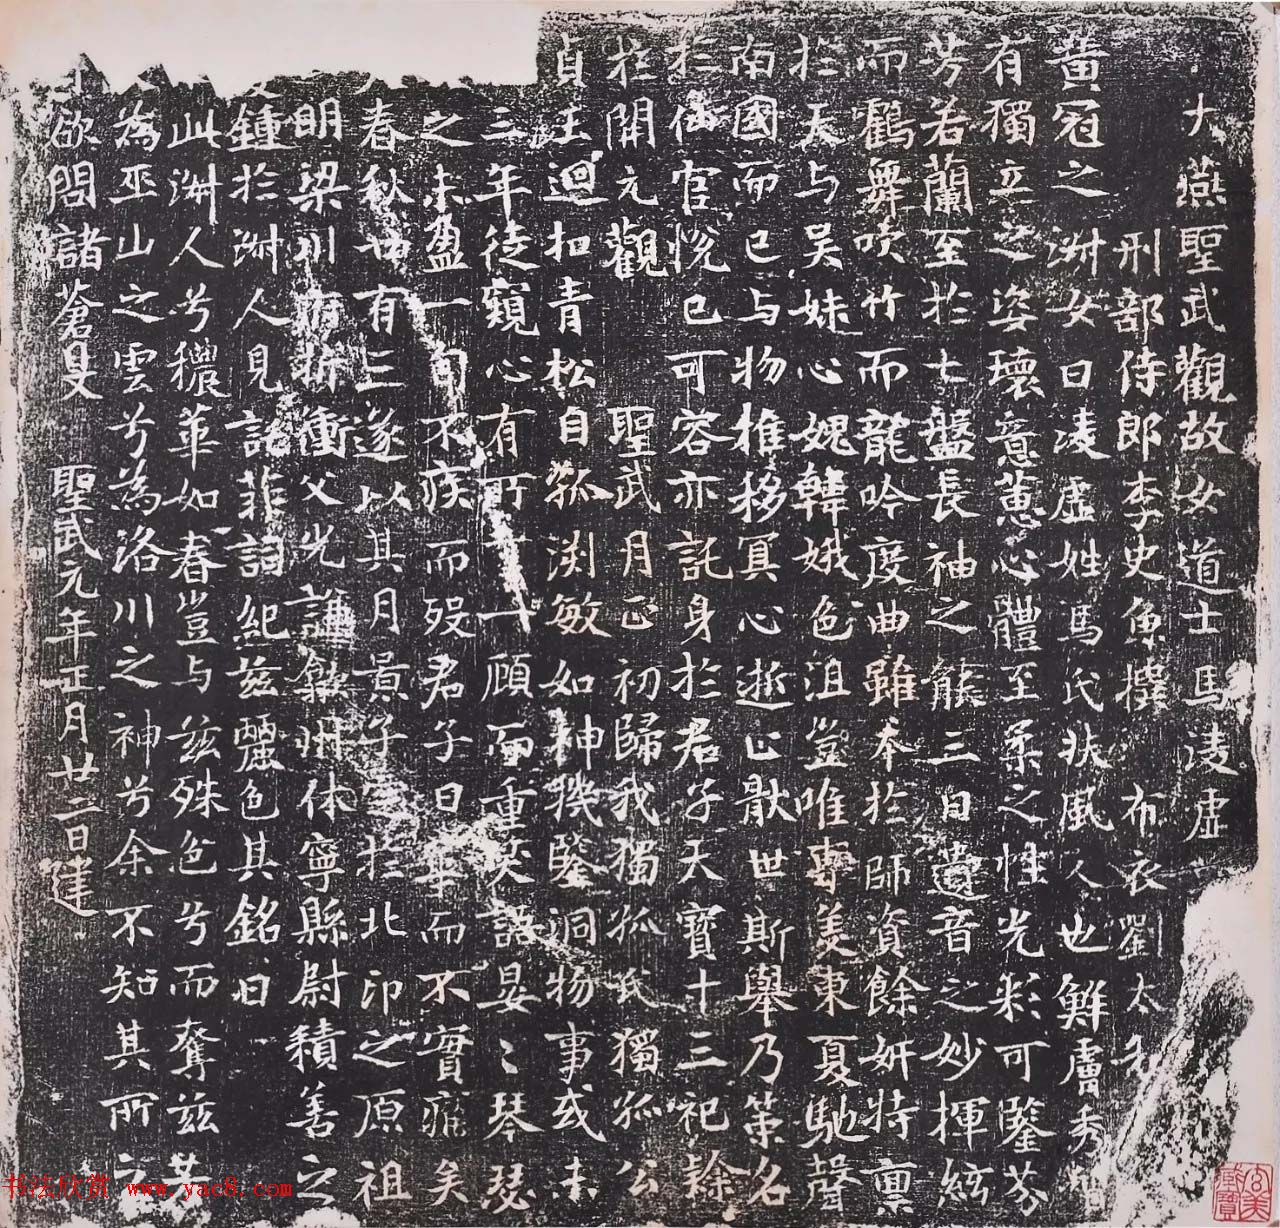 大燕聖武觀故女道士馬凌虛
刑部侍郎李史魚撰 布衣劉太和
黃冠之淑女曰凌虛姓馬氏扶風人也鮮膚秀
有獨立之姿瓌意蕙心體至柔之性光彩可鑒芬
芳若蘭至於七盤長袖之能三日遺音之妙揮絃
而鶴舞吹竹而龍吟度曲雖本於師資餘妍特稟
於天与吳妹心愧韓娥色沮豈唯專美東夏馳聲
南國而已与物推移冥心逝止猒世斯舉乃策名
於仙官悅已可容亦託身於君子天寶十三祀隸
於開元觀 聖武月正初歸我獨孤氏獨孤公
貞玉迴扣青松自孤渊敏如神機鑒洞物事或未
三年徒窺心有可一顧而重笑語晏〻琴瑟
之未盈一旬不疾而殁君子曰華而不實痛矣
春秋廿有三遂以其月景子窆於北邙之原祖
明梁川府折衝父光謙歙州休寧縣尉積善之
鍾於淑人見託菲詞紀兹麗色其銘曰
此淑人兮穠華如春豈与兹殊色兮而奪兹芳
為巫山之雲兮為洛川之神兮余不知其所之
欲問諸蒼旻 聖武元年正月廿二日建
书法欣赏 www.yac8.com